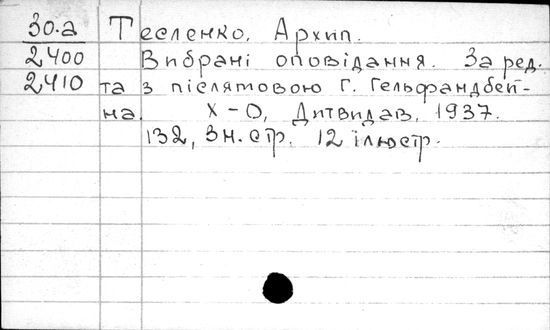 30.а Тесленко, Архип.
2400 Вибрані оповідання. За ред.
2410 та з післятовою Г. Гельфандбей-
на. Х-О, Дитвидав, 1937.
132, 3н. стр. 12 ілюстр.